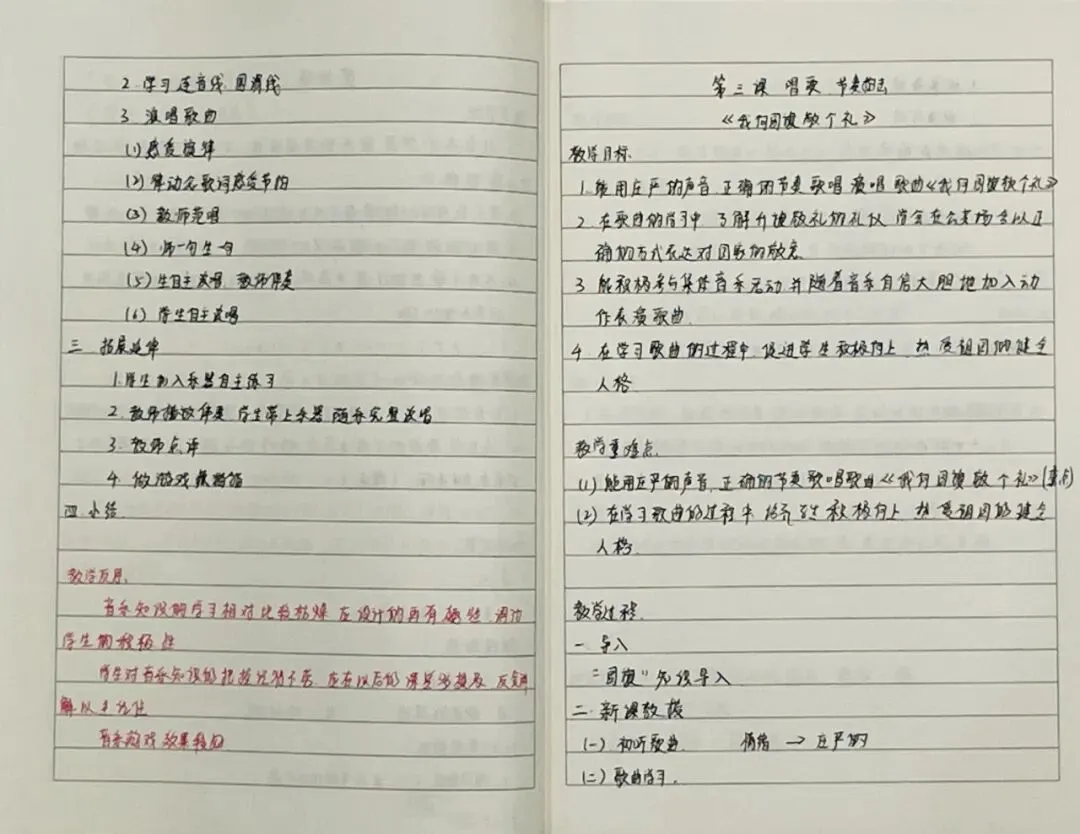 2. 学习连音线 圆滑线
3. 演唱歌曲
(1) 感受旋律
(2) 律动念歌词感受节拍
(3) 教师范唱
(4) 师一句生一句
(5) 生自主演唱，教师伴奏
(6) 学生自主演唱
三 拓展延伸
1. 学生加入乐器自主练习
2. 教师播放伴奏，学生带上乐器 随乐完整演唱
3. 教师点评
4. 做游戏
四 小结
教学反思：
音乐知识的学习相对比较枯燥 应设计的再有趣些，调动
学生的积极性
学生对音乐知识的把握 应在以后的课堂多提及，反复
解以
音乐游戏效果较
第三课 唱歌 节奏
《我向国旗敬个礼》
教学目标
1. 能用庄严的声音，正确的节奏歌唱 演唱 歌曲《我向国旗敬个礼》
2. 在歌曲的学习中 了解升旗敬礼的礼仪 学会在公共场合以正
确的方式表达对国歌的敬意
3. 能积极参与集体音乐活动 并随着音乐自信大胆地加入动
作表演歌曲
4. 在学习歌曲的过程中，促进学生积极向上，热爱祖国的健全
人格
教学重难点
(1) 能用庄严的声音，正确的节奏歌唱歌曲《我向国旗敬个礼》(重点)
(2) 在学习歌曲的过程中 培养学生 积极向上 热爱祖国的健全
人格
教学过程
一 导入
“国旗”知识导入
二 新课教授
(一) 初听歌曲 情绪 → 庄严的
(二) 歌曲学习.